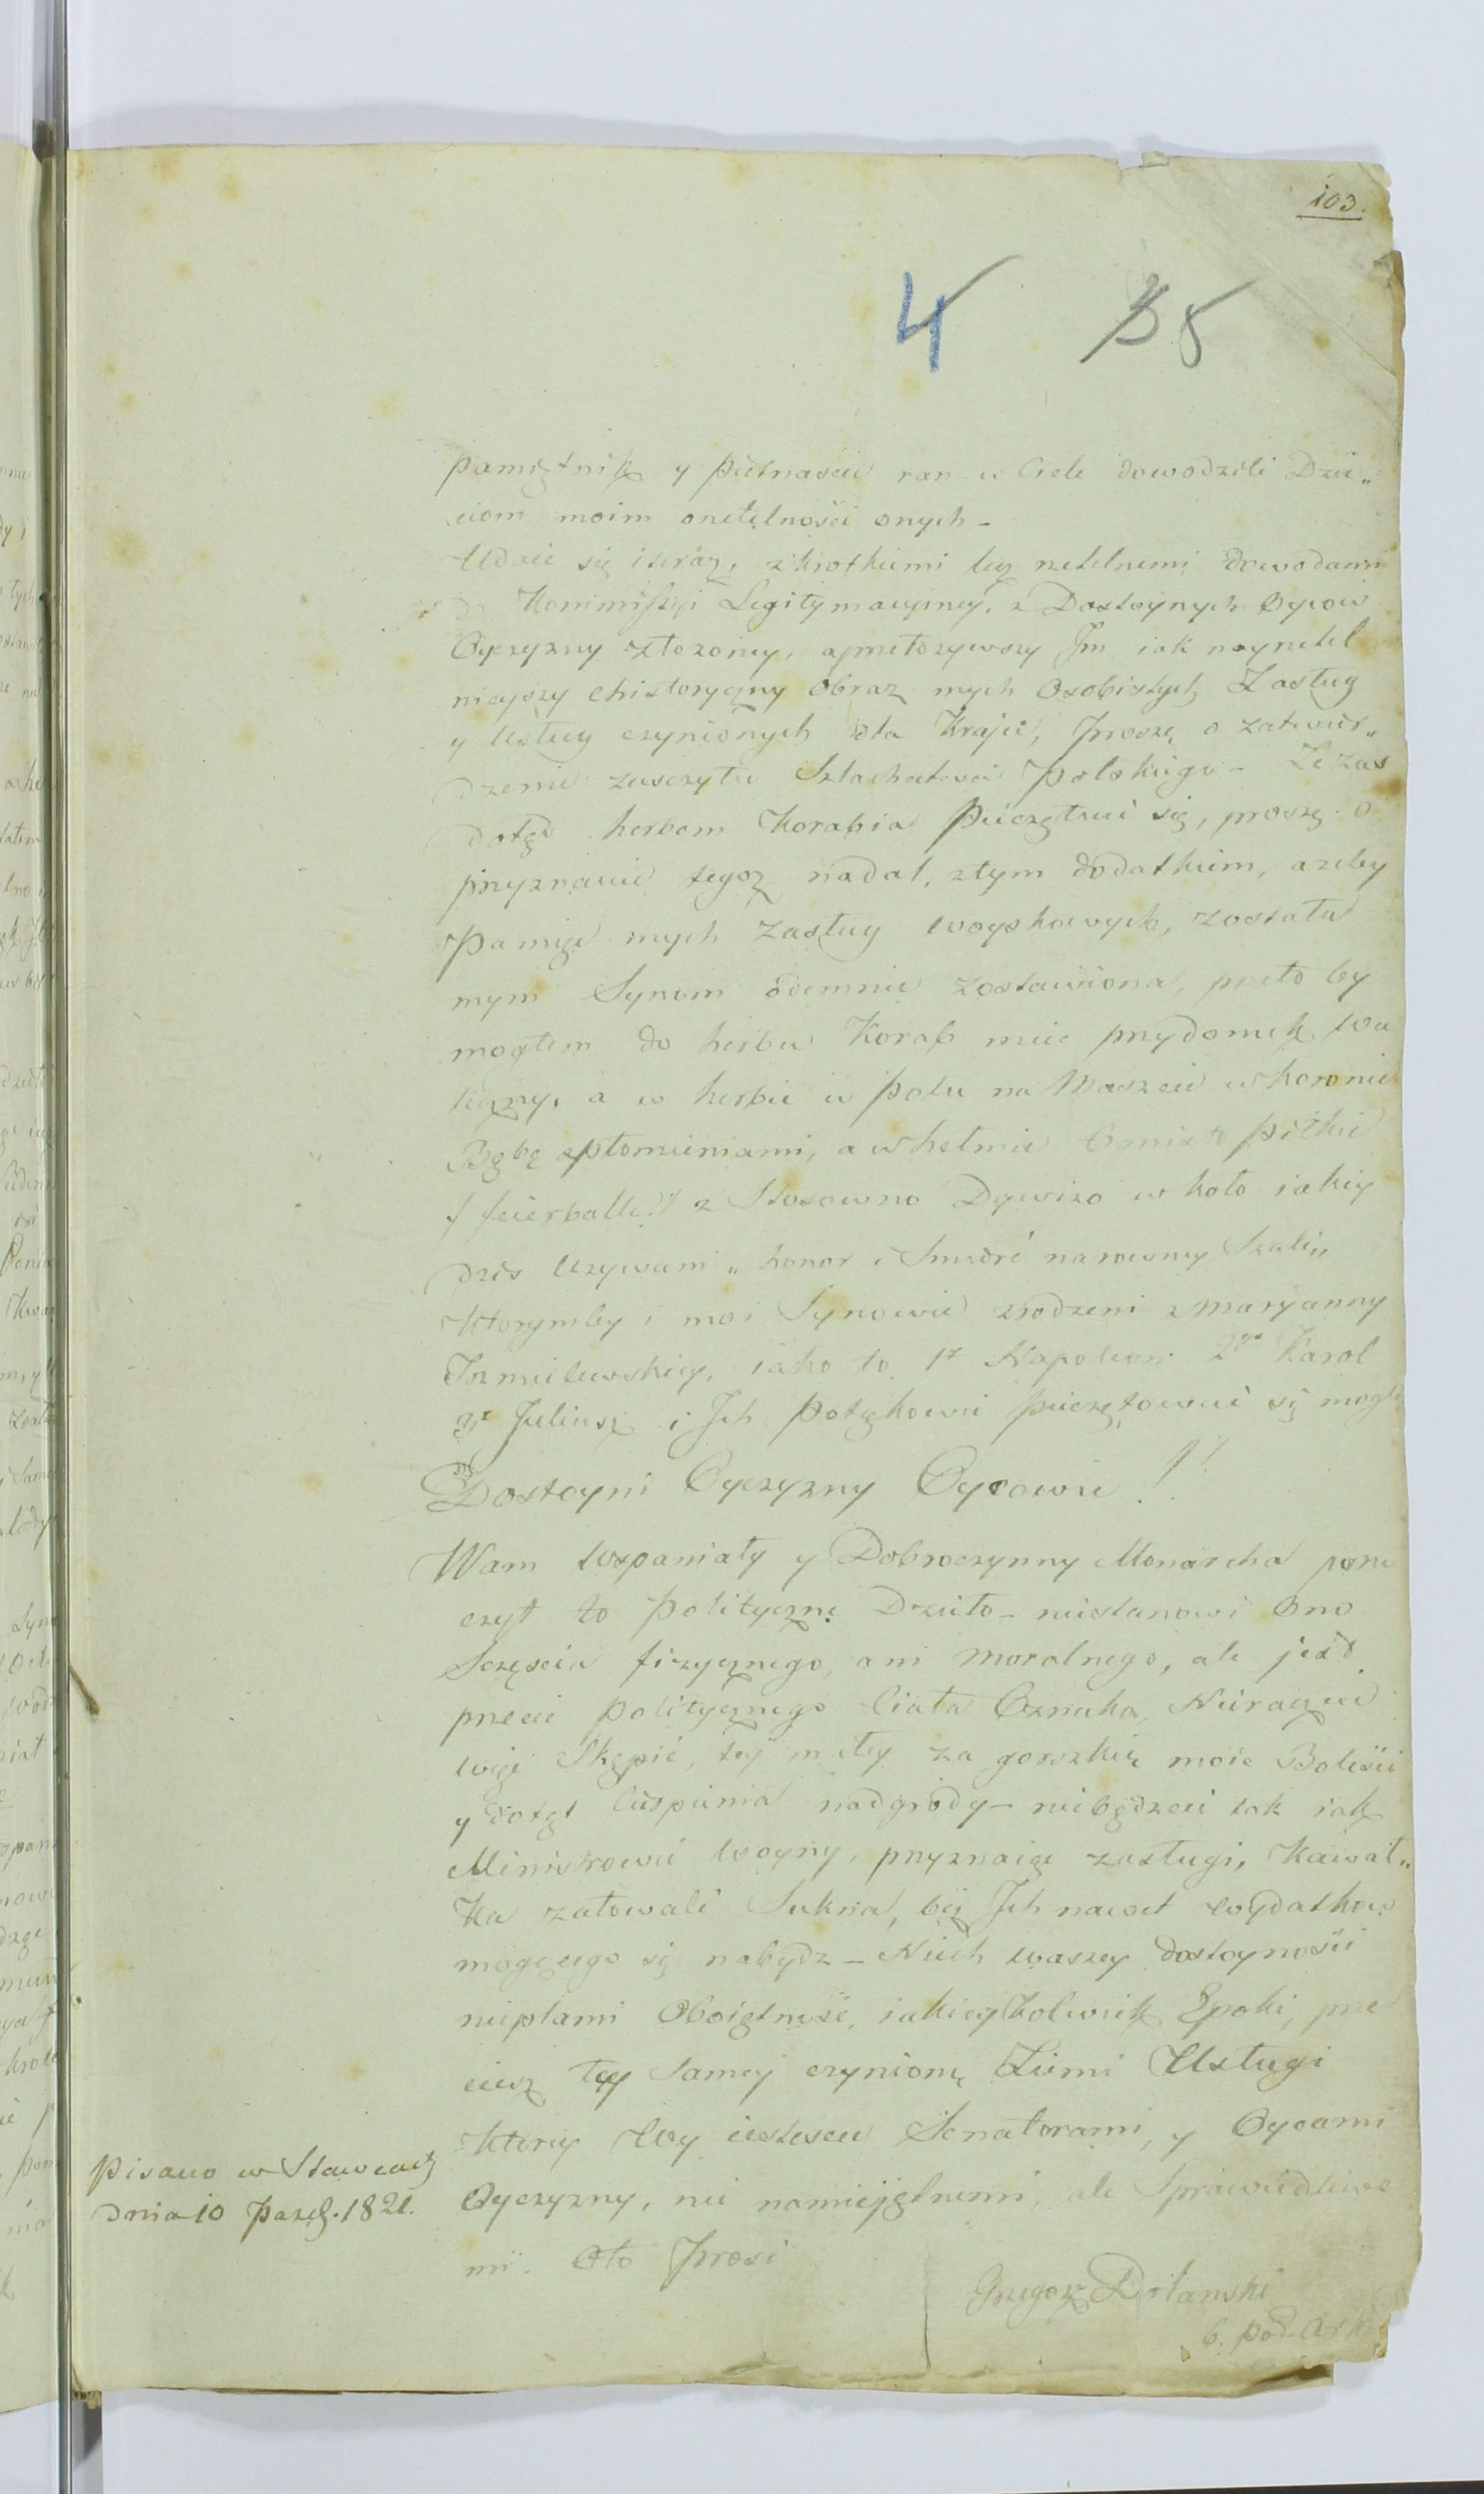 103.
4 35
pamiętnik y piętnaście ran w Ciele dowodzili Dzie„
ciom moim o netelności onych –
Udaie się i teraz, z krotkiemi lecz netelnemi dowodami
do Kommissyi Legitymacyiney, z Dostoynych Oycow
Oyczyzny złożoney, a przełożywszy Im iak naynetel
nieyszy Chistoryczny obraz mych Osobistych Zasług
y Usług czynionych dla Kraju, Proszę o zatwier„
dzenie zaszczytu Szlachectwa Polskiego – Że zas
dotąd herbem Korabia Pieczętuie się, proszę o
przyznanie tegoż nadal, z tym dodatkiem, ażeby
Pamięć mych Zasług woyskowych, została
mym Synom odemnie zostawiona, przeto by
mogłem do herbu Korab miec przydomek Wa
leczny, a w herbie w Polu na Maszcie w koronie
Bąbę z płomieniami, a w hełmie Ogniste Piłkie
/ feierballe / z Stosowno Dywizo w koło iakiey
dzis Używam „ honor i Smierć na rowney Szali „
Ktorymby i moi Synowie zrodzeni z Maryanny
Irzmilewskiey, iako to 1º Napoleon 2go Karol
3º Juliusz i Ich Potomkowie pieczętować się mogli
Dostoyni Oyczyzny Oycowie !
Wam Wspaniały y Dobroczynny Monarcha poru
czył to Polityczne Dzieło – niestanowi Ono
Sczęscia fizycznego, ani Moralnego, ale jest
przecie Politycznego Ciała Oznaka, Nieraczcie
więc Skąpić, tey małey za gorszkie moie Boleści
y dotąd Cierpienia nadgrody – niebądzcie tak iak
Ministrowie Woyny, przyznaiąc zasługi, Kawał„
ka załowali Sukna, bez Ich nawet wydatkow
mogącego się nabydz – Niech waszey dostoyności
nieplami Oboiętność, iakieykolwiek Epoki, prze
ciesz tey Samey czynione Ziemi Usługi
Ktorey Wy iestescie Senatorami, y Oycami
Oyczyzny, nie namiejętnemi ale Sprawiedliwe
mi. Oto Prosi
Grzegorz Dolanski
b. pod.
Pisano w Stawcach
Dnia 10 Pazd. 1821.